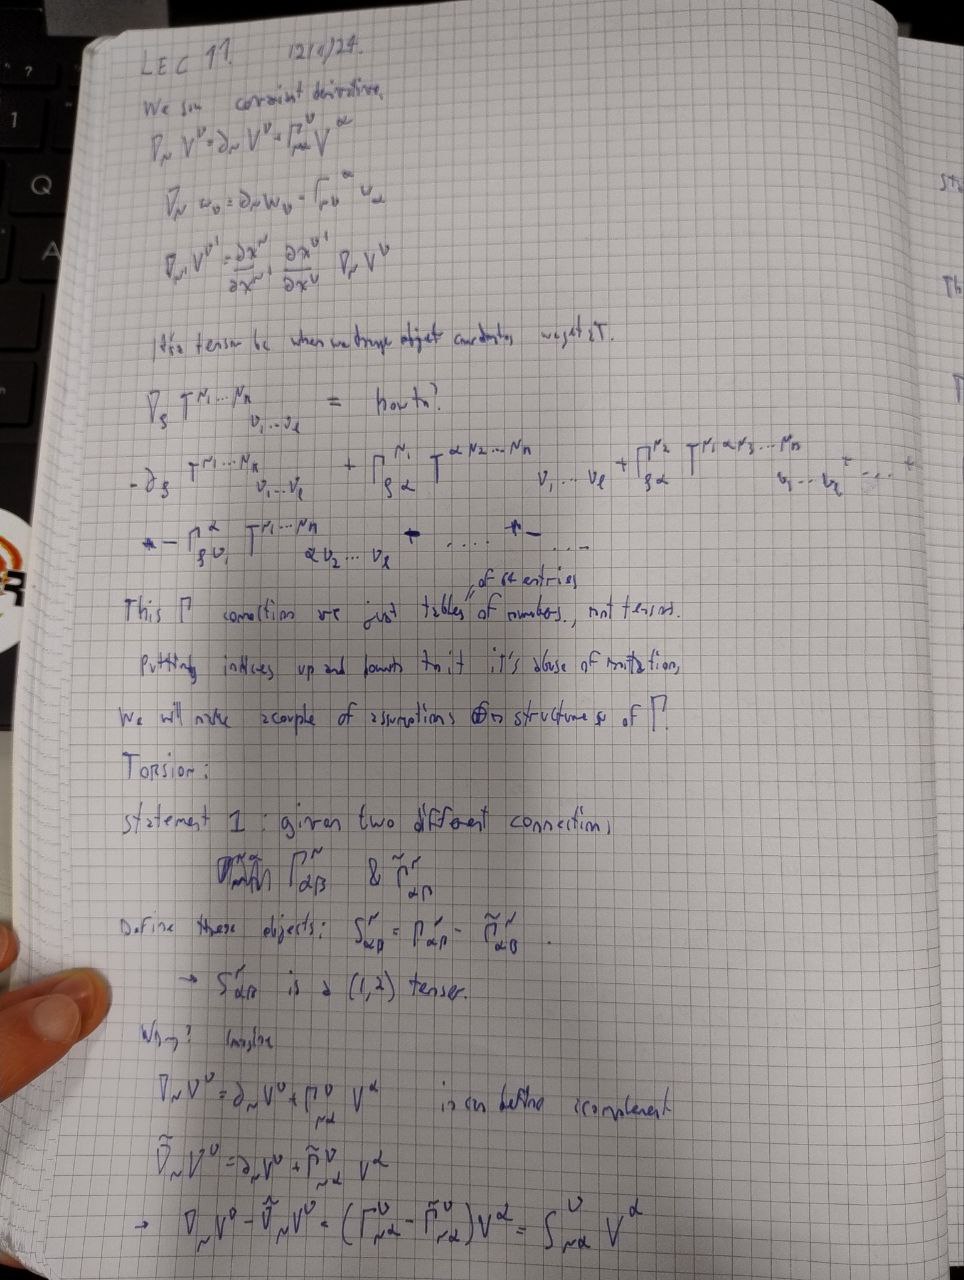 LEC 11. 12/11/24.
We saw covariant derivative,
∇_μ V^ν = ∂_μ V^ν + Γ^ν_{μα} V^α
∇_μ w_ν = ∂_μ w_ν - Γ_{μν}^α w_α
∇_{μ'} V^{ν'} = ∂x^μ/∂x^{μ'} ∂x^{ν'}/∂x^ν ∇_μ V^ν
It's a tensor bc when we change object coordinates we get
∇_ρ T^{μ_1...μ_k}_{ν_1...ν_l} = how to?
= ∂_ρ T^{μ_1...μ_k}_{ν_1...ν_l} + Γ^{μ_1}_{ρα} T^{αμ_2...μ_k}_{ν_1...ν_l} + Γ^{μ_2}_{ρα} T^{μ_1αμ_3...μ_k}_{ν_1...ν_l} + ... +
- Γ^α_{ρν_1} T^{μ_1...μ_k}_{αν_2...ν_l} - .... - ...
of entries
This Γ connection are just tables of numbers, not tensors.
Putting indices up and down to it it's abuse of notation,
We will make a couple of assumptions on structures of Γ.
Torsion:
statement 1: given two different connections,
Γ^μ_{αβ} & Γ̃^μ_{αβ}
Define these objects: S^μ_{αβ} = Γ^μ_{αβ} - Γ̃^μ_{αβ}.
→ S^μ_{αβ} is a (1,2) tensor.
Why? Imagine
∇_μ V^ν = ∂_μ V^ν + Γ^ν_{μα} V^α
∇̃_μ V^ν = ∂_μ V^ν + Γ̃^ν_{μα} V^α
→ ∇_μ V^ν - ∇̃_μ V^ν = (Γ^ν_{μα} - Γ̃^ν_{μα}) V^α = S^ν_{μα} V^α